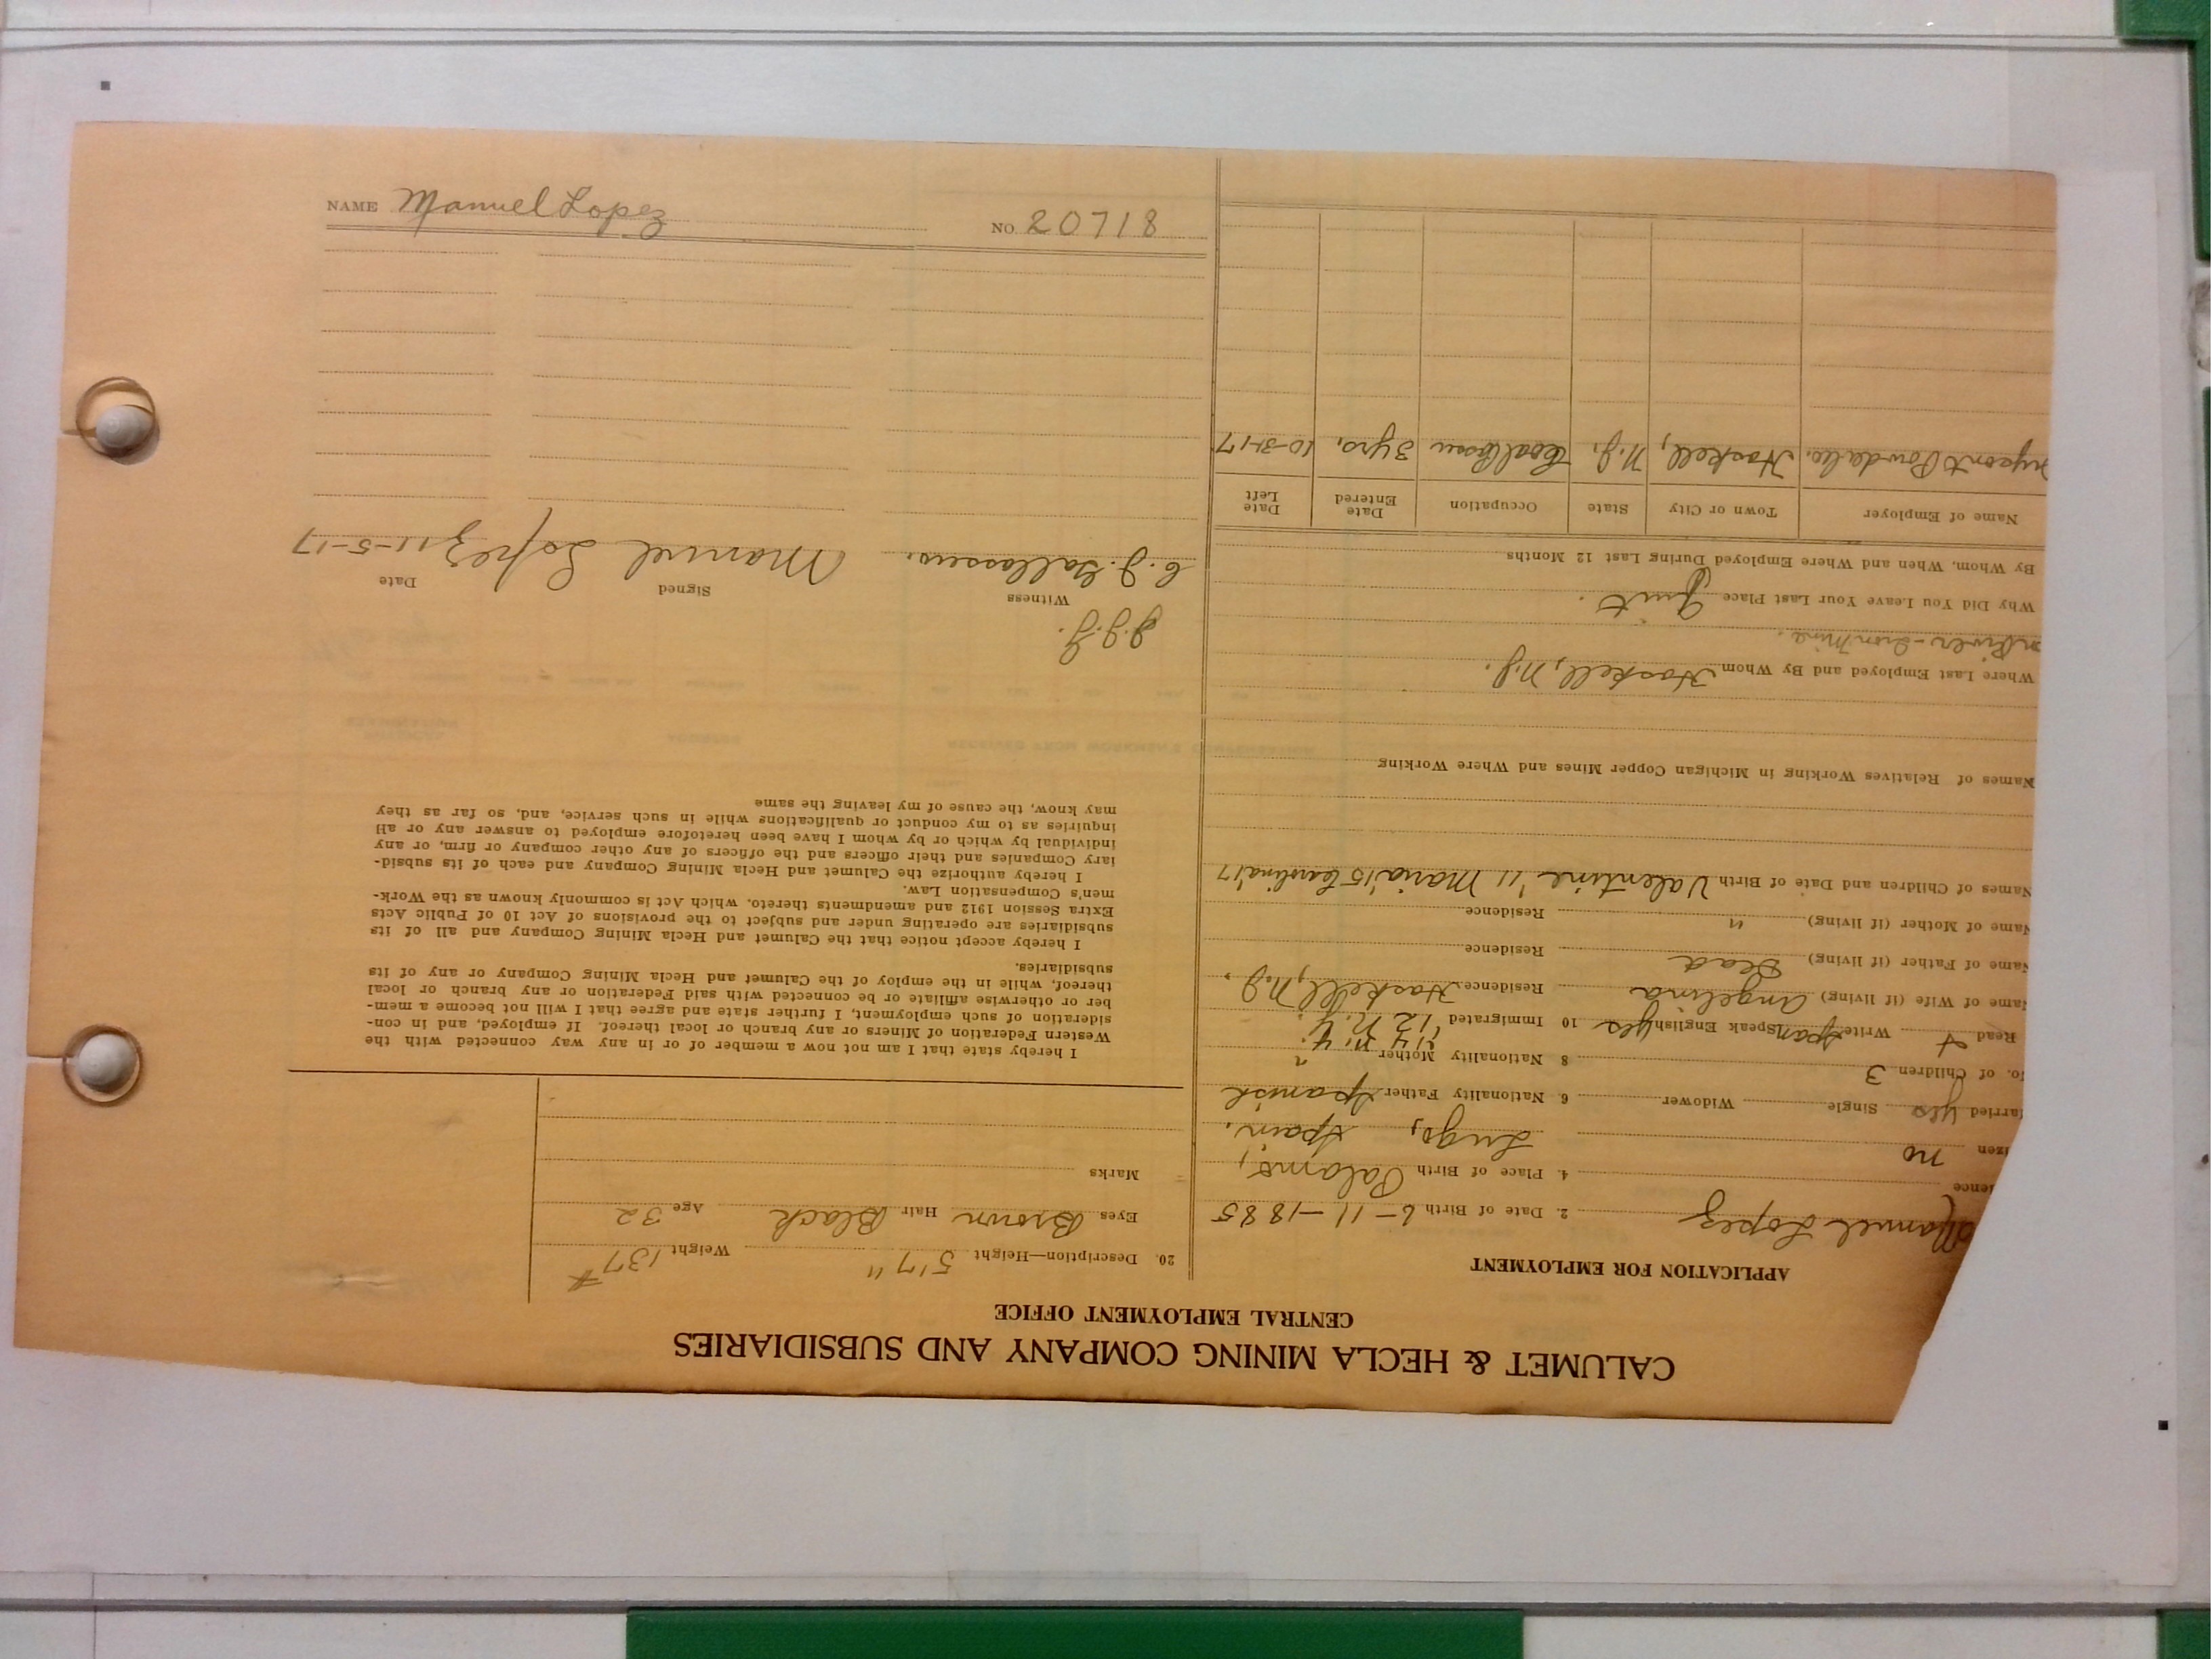 CALUMET & HECLA MINING COMPANY AND SUBSIDIARIES
CENTRAL EMPLOYMENT OFFICE
APPLICATION FOR EMPLOYMENT
Manuel Lopez 2. Date of Birth 6-11-1885
ence 4. Place of Birth
izen no Lugo, Spain.
arried yes Single Widower 6. Nationality Father Spanish
o. of Children 3 8 Nationality Mother "
'14 N.Y.
Read + Write Span Speak English yes 10 Immigrated '12 N.Y.
Name of Wife (if living) Angelina Residence Haskell, N.J.
Name of Father (if living) Dead Residence
Name of Mother (if living) " Residence
Names of Children and Date of Birth Valentine '11 Maria '15 Carolina '17
Names of Relatives Working in Michigan Copper Mines and Where Working
Where Last Employed and By Whom Haskell, N.J.
River - Iron Mine.
Why Did You Leave Your Last Place Quit.
By Whom, When and Where Employed During Last 12 Months
Name of Employer Town or City State Occupation Date Entered Date Left
Haskell, N.J. 3 yrs. 10-31-17
20. Description—Height 5'7" Weight 137#
Eyes Brown Hair Black Age 32
Marks
I hereby state that I am not now a member of or in any way connected with the
Western Federation of Miners or any branch or local thereof. If employed, and in con-
sideration of such employment, I further state and agree that I will not become a mem-
ber or otherwise affiliate or be connected with said Federation or any branch or local
thereof, while in the employ of the Calumet and Hecla Mining Company or any of its
subsidiaries.
I hereby accept notice that the Calumet and Hecla Mining Company and all of its
subsidiaries are operating under and subject to the provisions of Act 10 of Public Acts
Extra Session 1912 and amendments thereto, which Act is commonly known as the Work-
men's Compensation Law.
I hereby authorize the Calumet and Hecla Mining Company and each of its subsid-
iary Companies and their officers and the officers of any other company or firm, or any
individual by which or by whom I have been heretofore employed to answer any or all
inquiries as to my conduct or qualifications while in such service, and, so far as they
may know, the cause of my leaving the same
J.J.J.
Witness Signed Date
Manuel Lopez 11-5-17
NAME Manuel Lopez NO. 20718